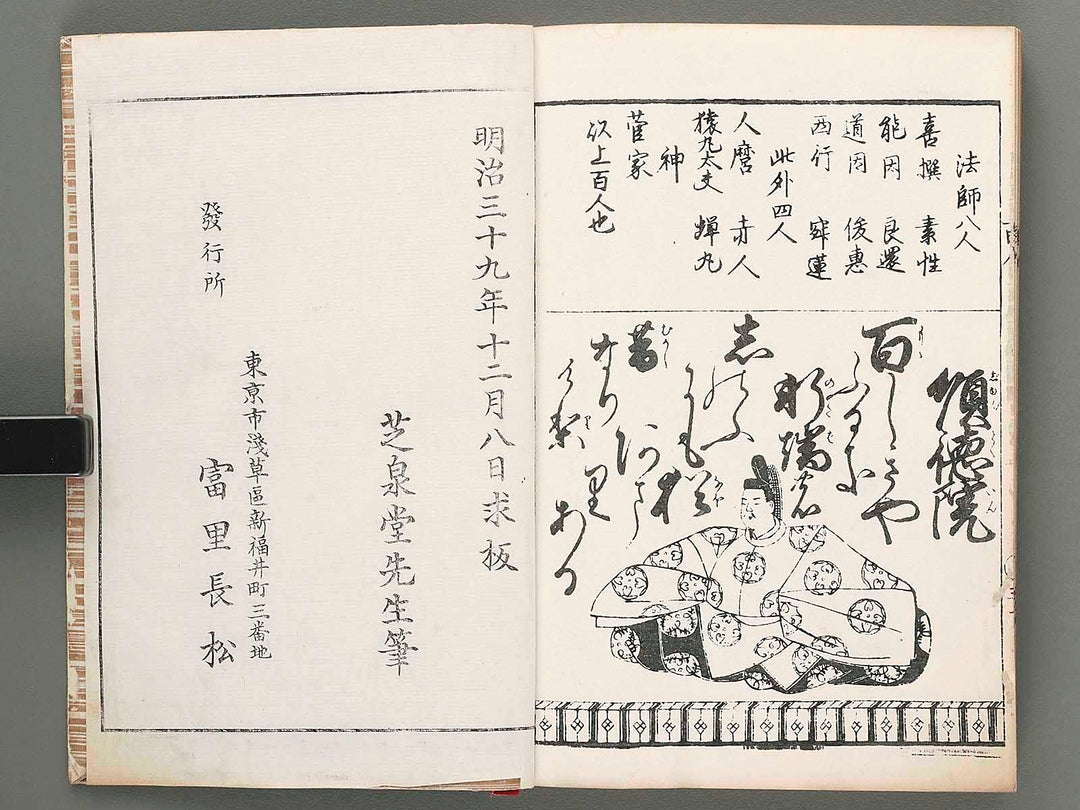 法師八人
喜撰　素性
能因　良暹
道因　俊惠
西行　寂蓮
此外四人
人麿　赤人
猿丸太夫　蝉丸
神
菅家
以上百人也
順徳院
百しきや
ふるき
軒端の
志のふ
にも猶
あま
里
ある
昔
なり
け梨
明治三十九年十二月八日求板
芝泉堂先生筆
發行所
東京市淺草區新福井町三番地
富里長松